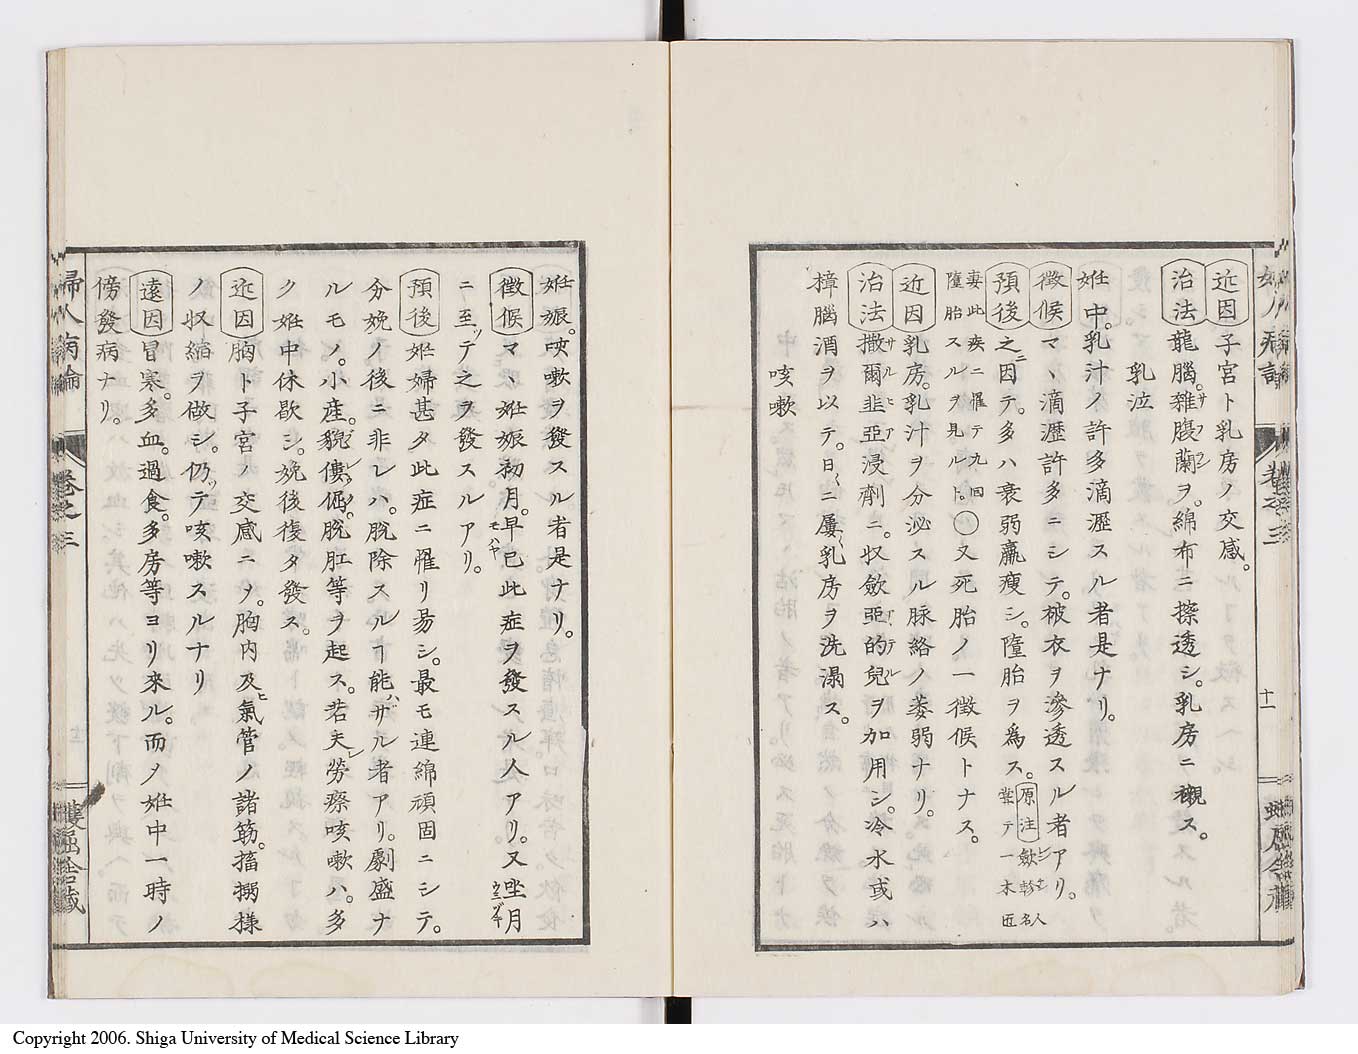 近因子宮ト乳房ノ交感。
治法龍腦。雜腹蘭ヲ。綿布ニ擦透シ。乳房ニ襯ス。
乳泣
妊中。乳汁ノ許多滴瀝スル者是ナリ。
徴候マヽ滴瀝許多ニシテ。被衣ヲ滲透スル者アリ。
預後之ニ因テ。多ハ衰弱羸瘦シ。墮胎ヲ爲ス。原注
甞テ一木匠
妻此疾ニ罹テ九回〇又死胎ノ一徴候トナス。
墮胎スルヲ見ルト。
近因乳房。乳汁ヲ分泌スル脉絡ノ萎弱ナリ。
治法撒爾韭亞浸劑ニ。収斂亞的兒ヲ加用シ。冷水或ハ
樟腦酒ヲ以テ。日〱ニ屢〱乳房ヲ洗滌ス。
咳嗽
妊娠。咳嗽ヲ發スル者是ナリ。
徴候マヽ妊娠初月。早已此症ヲ發スル人アリ。又坐月
ニ至ッテ之ヲ發スルアリ。
預後妊婦甚タ此症ニ罹リ昜シ。最モ連綿頑固ニシテ。
分娩ノ後ニ非レハ。脱除スルヿ能ハザル者アリ。劇盛ナ
ルモノ。小産。䝚僂傴。脱肛等ヲ起ス。若夫レ勞瘵咳嗽ハ。多
ク妊中休歇シ。娩後復タ發ス。
近因胸ト子宮ノ交感ニヲ。胸内及ヒ氣管ノ諸筋。搐搦様
ノ収縮ヲ做シ。仍ッテ咳嗽スルナリ
遠因冒寒。多血。過食。多房等ヨリ来ル。而メ妊中一時ノ
傍發病ナリ。
婦人病論
卷之三
十一
Copyright 2006. Shiga University of Medical Science Library